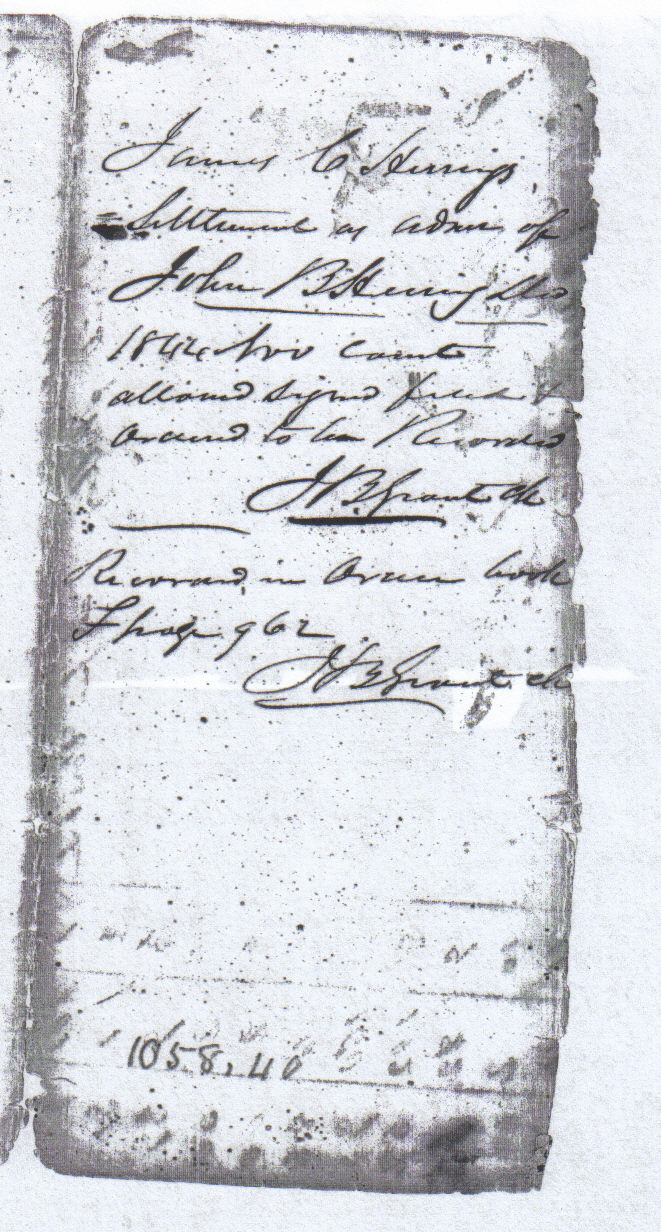 James C Herrings
Settlement as admr of
John B Herring Decd
1844 Nov Court
allowed signed filed &
Ordered to be Recorded
J B Grant Clk
Recorded in Order book
F page 962
J B Grant Clk
1058,40